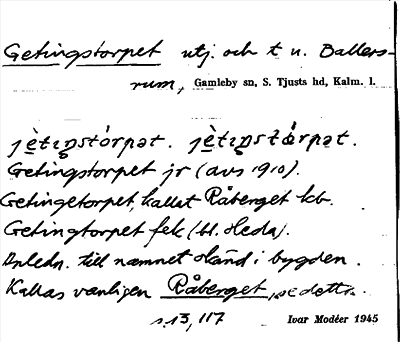 Getingstorpet utj. och t u. Ballers-
rum, Gamleby sn, S. Tjusts hd, Kalm. l.
jètɪŋstórpət. jètɪŋstǻrpət.
Getingstorpet jr (avs 1910).
Getingetorpet, kallat Råberget kb.
Getingtorpet fek (bl. Heda).
Anledn. till namnet okänd i bygden.
Kallas vanligen Råberget, se detta.
s. 13, 117 Ivar Modéer 1945